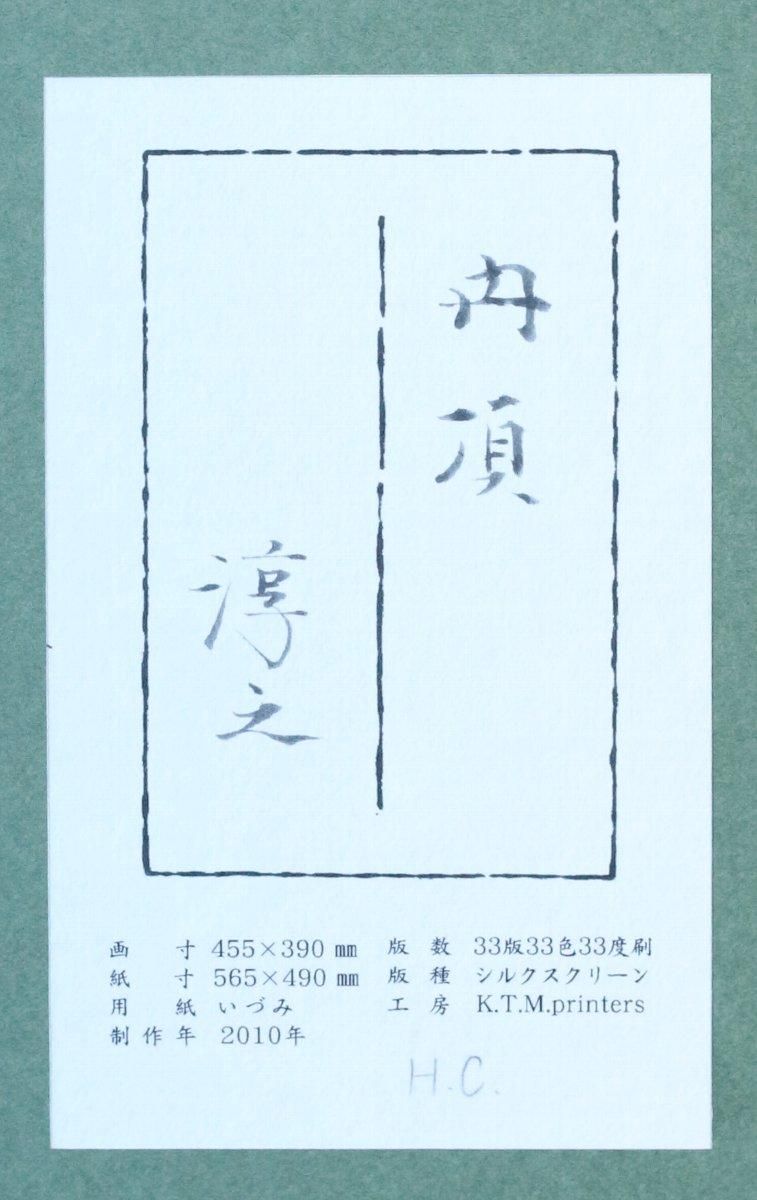 丹頂
淳之
画寸 455×390㎜
紙寸 565×490㎜
用紙 いづみ
制作年 2010年
版数 33版33色33度刷
版種 シルクスクリーン
工房 K.T.M.printers
H.C.